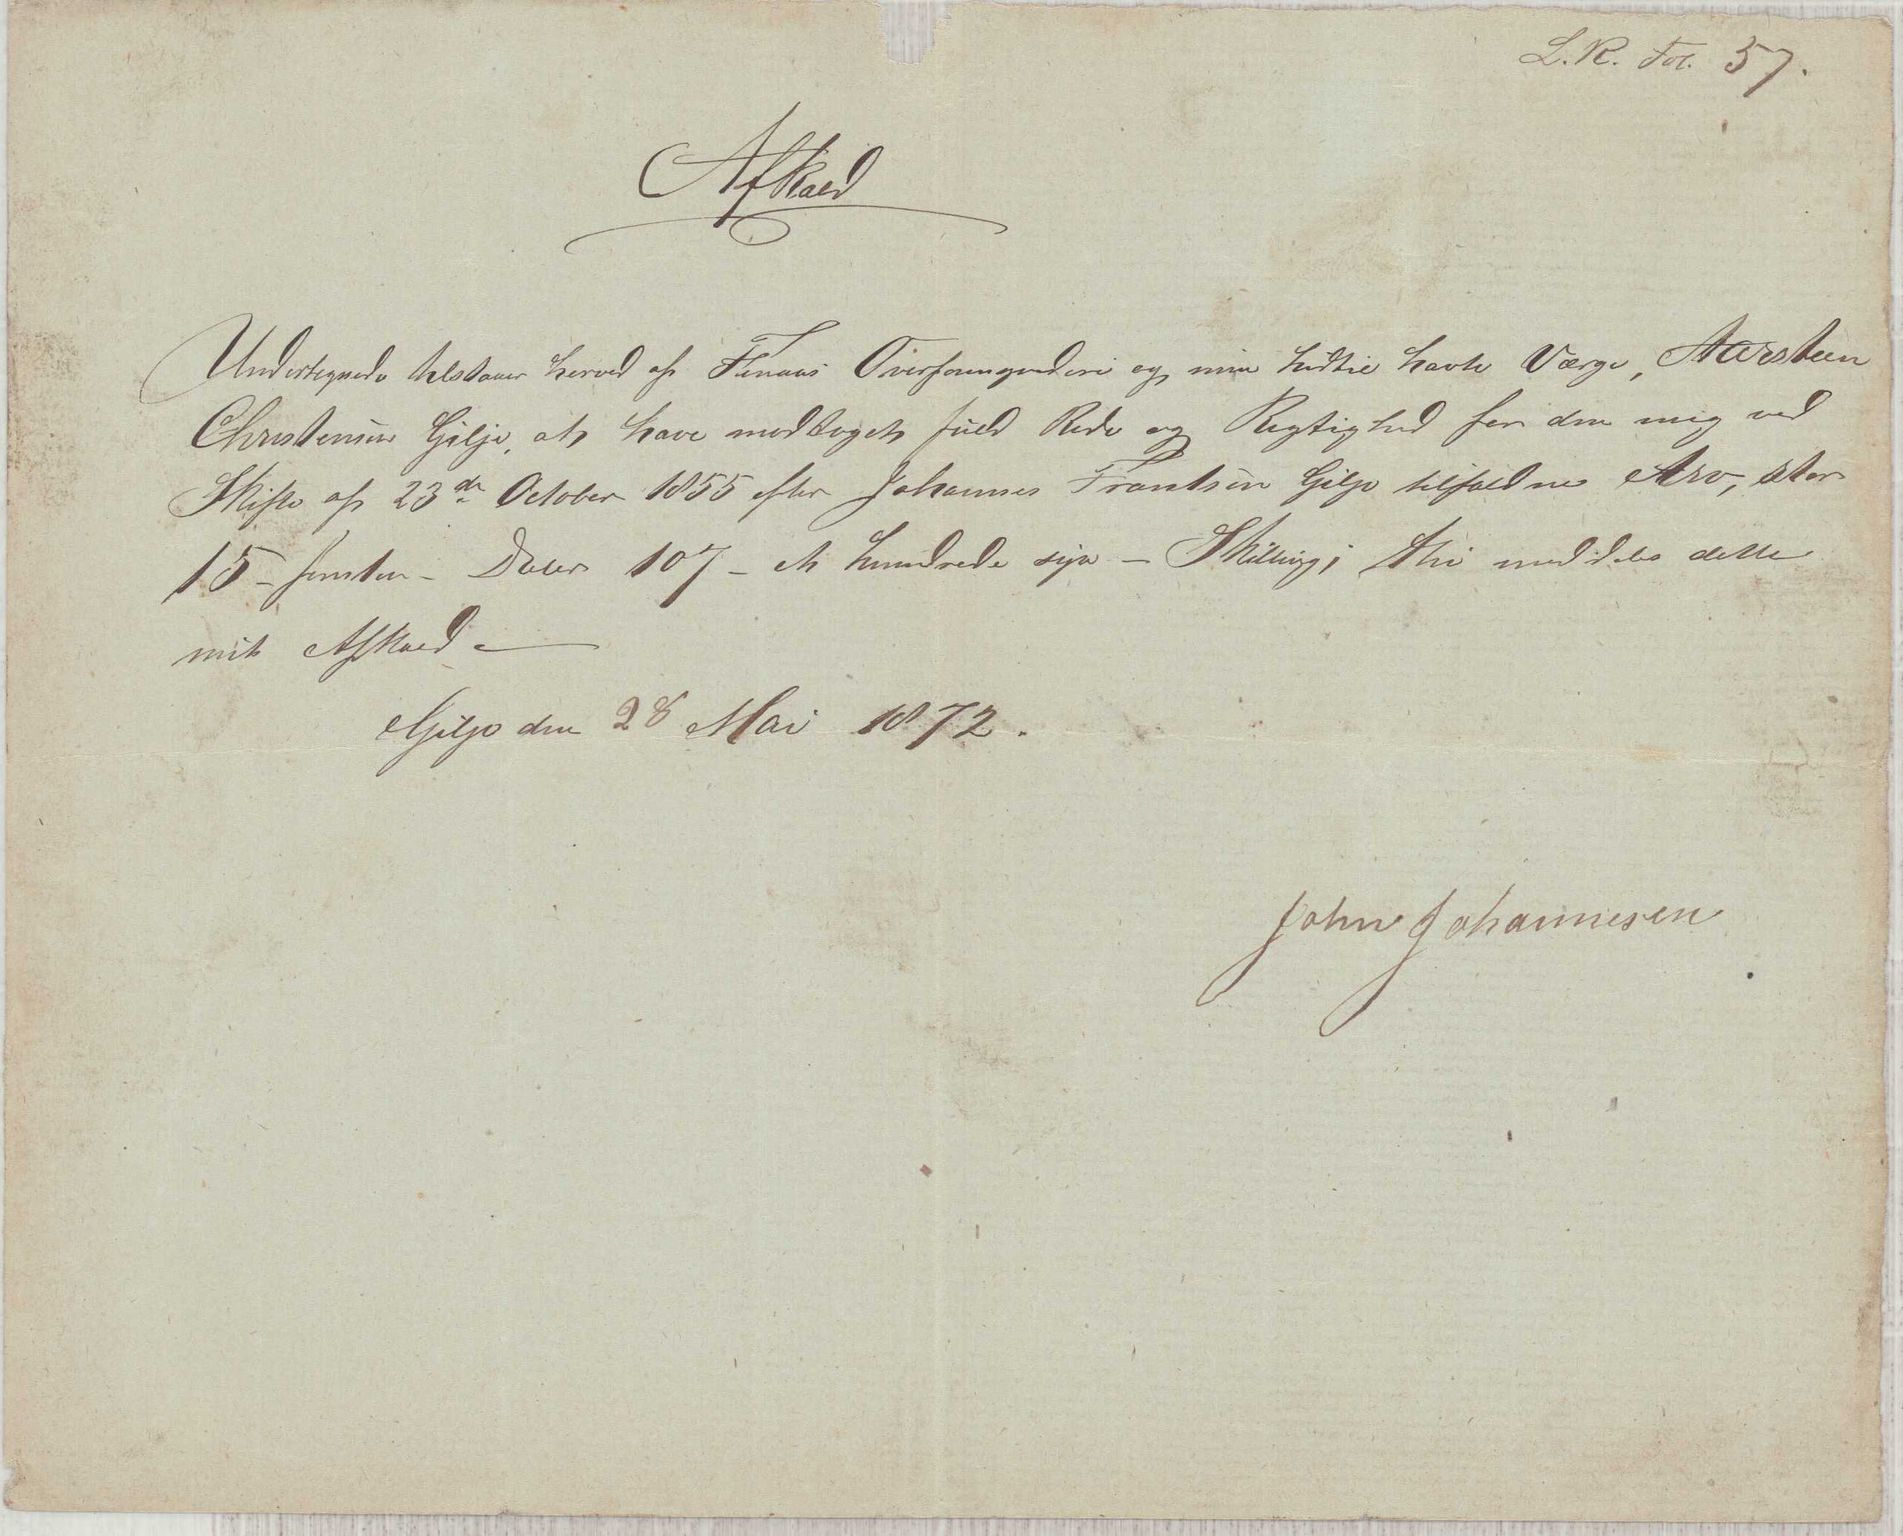 L. R. Fol. 57.
Afkald
Undertegnede tilstaaer herved af Finaas Overformynderi og min hidtil havte Værge,
Christensen Gilje, at have modtaget fuld Rede og Rigtighed for den mig ved
Skifte af 23de October 1855 efter Johannes Frantsen Gilje tilfaldne Arv, stor
15 - femten - Daler 107 - et hundrede syv - Skilling; thi meddeles dette
mit Afkald
Gilje den 28 Mai 1872.
John Johannesen